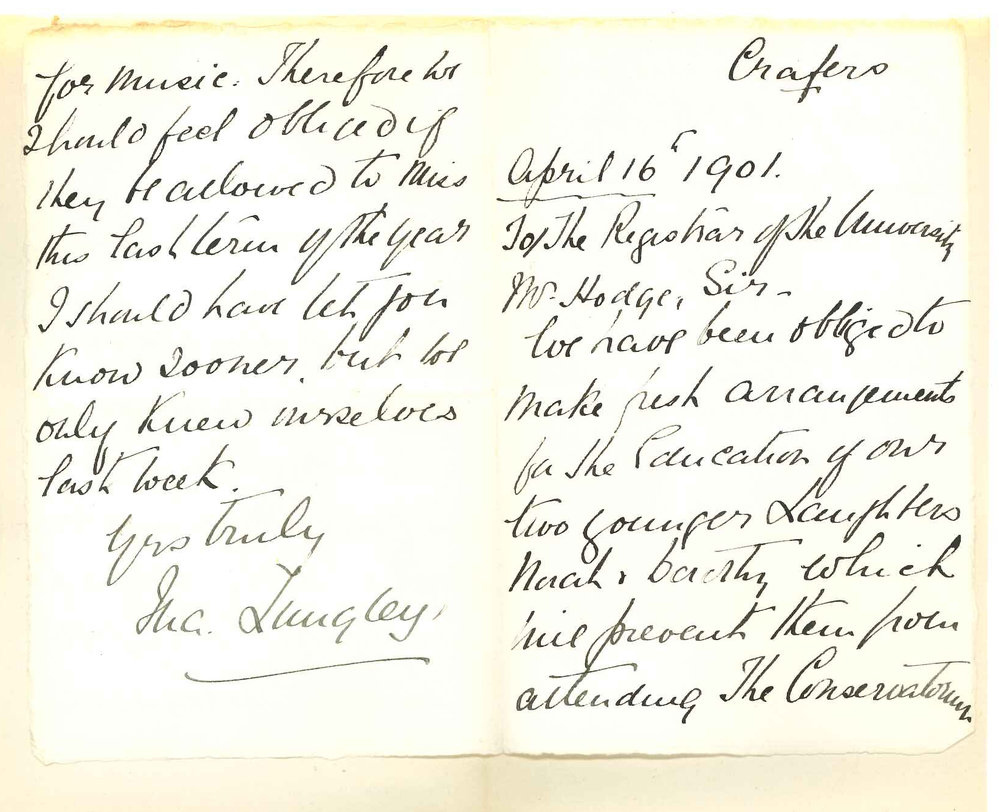 Crafers
April 16th 1901.
To/ The Registrar of the University
Mr Hodge, Sir -
We have been obliged to
make fresh arrangements
for the Education of our
two younger Daughters
Norah & Dorothy which
will prevent them from
attending The Conservatorium
for Music. Therefore we
should feel obliged if
they be allowed to miss
this last term of the year
I should have let you
know sooner, but we
only knew ourselves
last week.
Yrs truly
Langley